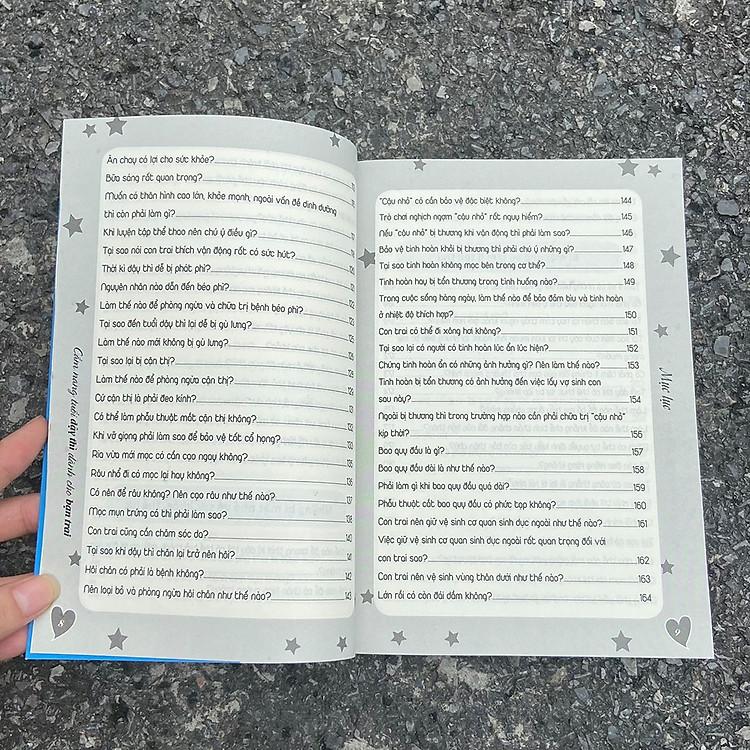 Ăn chay có lợi cho sức khỏe?
Bữa sáng rất quan trọng?
Muốn có thân hình cao lớn, khỏe mạnh, ngoài vấn đề dinh dưỡng
thì còn phải làm gì?
Khi luyện tập thể thao nên chú ý điều gì?
Tại sao nói con trai thích vận động rất có sức hút?
Thời kì dậy thì dễ bị phát phì? 120
Nguyên nhân nào dẫn đến béo phì? 122
Làm thế nào để phòng ngừa và chữa trị bệnh béo phì? 123
Tại sao đến tuổi dậy thì lại dễ bị gù lưng? 125
Làm thế nào mới không bị gù lưng?
Tại sao lại bị cận thị?
Làm thế nào để phòng ngừa cận thị?
Cứ cận thị là phải đeo kính?
Có thể làm phẫu thuật mắt cận thị không? 131
Khi vỡ giọng phải làm sao để bảo vệ tốt cổ họng? 133
Ria vừa mới mọc có cần cạo ngay không? 135
Râu nhổ đi có mọc lại hay không?
Có nên để râu không? Nên cạo râu như thế nào? 137
Mọc mụn trứng cá thì phải làm sao? 138
Con trai cũng cần chăm sóc da? 141
Tại sao khi dậy thì chân lại trở nên hôi? 141
Hôi chân có phải là bệnh không? 142
Nên loại bỏ và phòng ngừa hôi chân như thế nào? 143
Cẩm nang tuổi dậy thì dành cho bạn trai
8
"Cậu nhỏ" có cần bảo vệ đặc biệt không? 144
Trò chơi nghịch ngợm "cậu nhỏ" rất nguy hiểm? 145
Nếu "cậu nhỏ" bị thương khi vận động thì phải làm sao? 146
Bảo vệ tinh hoàn khỏi bị thương thì phải chú ý những gì? 147
Tại sao tinh hoàn không mọc bên trong cơ thể? 148
Tinh hoàn hay bị tổn thương trong tình huống nào? 149
Trong cuộc sống hàng ngày, làm thế nào để bảo đảm bìu và tinh hoàn
ở nhiệt độ thích hợp? 150
Con trai có thể đi xông hơi không? 151
Tại sao lại có người có tinh hoàn lúc ẩn lúc hiện? 152
Chứng tinh hoàn ẩn có những ảnh hưởng gì? Nên làm thế nào? 153
Tinh hoàn bị tổn thương có ảnh hưởng đến việc lấy vợ sinh con
sau này? 154
Ngoài bị thương thì trong trường hợp nào cần phải chữa trị "cậu nhỏ"
kịp thời? 156
Bao quy đầu là gì? 157
Bao quy đầu dài là như thế nào? 158
Phải làm gì khi bao quy đầu quá dài? 159
Phẫu thuật cắt bao quy đầu có phức tạp không? 160
Con trai nên giữ vệ sinh cơ quan sinh dục ngoài như thế nào? 161
Việc giữ vệ sinh cơ quan sinh dục ngoài rất quan trọng đối với
con trai sao? 162
Con trai nên vệ sinh vùng thân dưới như thế nào? 163
Lớn rồi có còn đái dầm không? 164
Mục lục
9